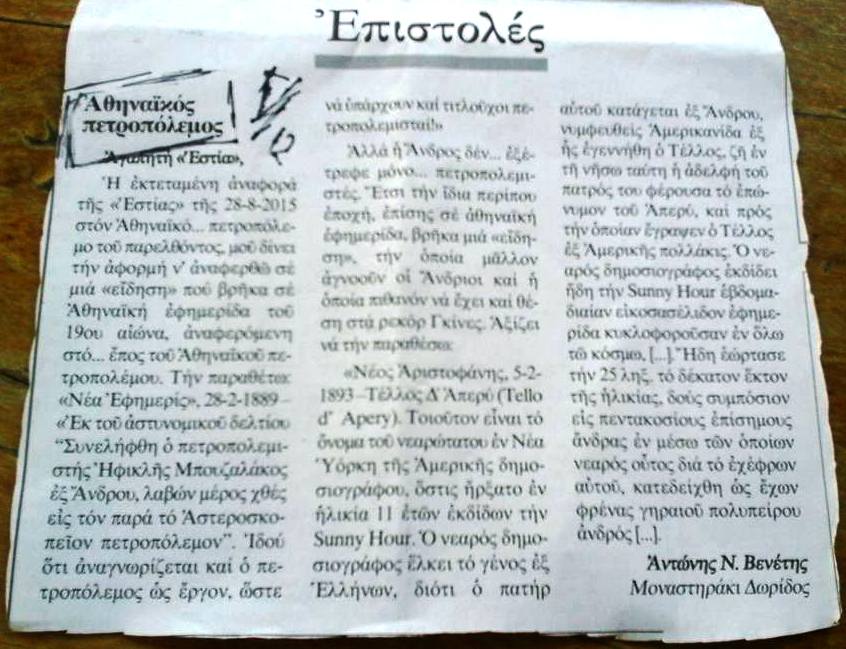 Ἐπιστολές
Ἀθηναϊκός
πετροπόλεμος
Ἀγαπητή «Ἑστία»,
Ἡ ἐκτεταμένη ἀναφορά
τῆς «Ἑστίας» τῆς 28-8-2015
στόν Ἀθηναϊκό... πετροπόλε-
μο τοῦ παρελθόντος, μοῦ δίνει
τήν ἀφορμή ν' ἀναφερθῶ σέ
μιά «εἴδηση» πού βρῆκα σέ
Ἀθηναϊκή ἐφημερίδα τοῦ
19ου αἰώνα, ἀναφερόμενη
στό... ἔπος τοῦ Ἀθηναϊκοῦ πε-
τροπολέμου. Τήν παραθέτω:
«Νέα Ἐφημερίς», 28-2-1889 –
«Ἐκ τοῦ ἀστυνομικοῦ δελτίου
“Συνελήφθη ὁ πετροπολεμι-
στής Ἡφικλῆς Μπουζαλάκος
ἐξ Ἄνδρου, λαβών μέρος χθές
εἰς τόν παρά τό Ἀστεροσκο-
πεῖον πετροπόλεμον”. Ἰδού
ὅτι ἀναγνωρίζεται καί ὁ πε-
τροπόλεμος ὡς ἔργον, ὥστε
νά ὑπάρχουν καί τιτλοῦχοι πε-
τροπολεμισταί!»
Ἀλλά ἡ Ἄνδρος δέν... ἐξέ-
τρεφε μόνο... πετροπολεμι-
στές. Ἔτσι τήν ἴδια περίπου
ἐποχή, ἐπίσης σέ ἀθηναϊκή
ἐφημερίδα, βρῆκα μιά «εἴδη-
ση», τήν ὁποία μᾶλλον
ἀγνοοῦν οἱ Ἄνδριοι καί ἡ
ὁποία πιθανόν νά ἔχει καί θέ-
ση στά ρεκόρ Γκίνες. Ἀξίζει
νά τήν παραθέσω:
«Νέος Ἀριστοφάνης, 5-2-
1893 – Τέλλος Δ' Ἀπερύ (Tello
d' Apery). Τοιοῦτον εἶναι τό
ὄνομα τοῦ νεαρώτατου ἐν Νέα
Ὑόρκη τῆς Ἀμερικῆς δημο-
σιογράφου, ὅστις ἤρξατο ἐν
ἡλικία 11 ἐτῶν ἐκδίδων τήν
Sunny Hour. Ὁ νεαρός δημο-
σιογράφος ἕλκει τό γένος ἐξ
Ἑλλήνων, διότι ὁ πατήρ
αὐτοῦ κατάγεται ἐξ Ἄνδρου,
νυμφευθείς Ἀμερικανίδα ἐξ
ἧς ἐγεννήθη ὁ Τέλλος, ζῆ ἐν
τῆ νήσω ταύτη ἡ ἀδελφή τοῦ
πατρός του φέρουσα τό ἐπώ-
νυμον τοῦ Ἀπερύ, καί πρός
τήν ὁποίαν ἔγραψεν ὁ Τέλλος
ἐξ Ἀμερικῆς πολλάκις. Ὁ νε-
αρός δημοσιογράφος ἐκδίδει
ἤδη τήν Sunny Hour ἑβδομα-
διαίαν εἰκοσασέλιδον ἐφημε-
ρίδα κυκλοφοροῦσαν ἐν ὅλω
τῶ κόσμω, [...]. Ἤδη ἑώρτασε
τήν 25 ληξ. τό δέκατον ἕκτον
τῆς ἡλικίας, δούς συμπόσιον
εἰς πεντακοσίους ἐπίσημους
ἄνδρας ἐν μέσω τῶν ὁποίων
νεαρός οὗτος διά τό ἐχέφρων
αὐτοῦ, κατεδείχθη ὡς ἔχων
φρένας γηραιοῦ πολυπείρου
ἀνδρός [...].
Ἀντώνης Ν. Βενέτης
Μοναστηράκι Δωρίδος